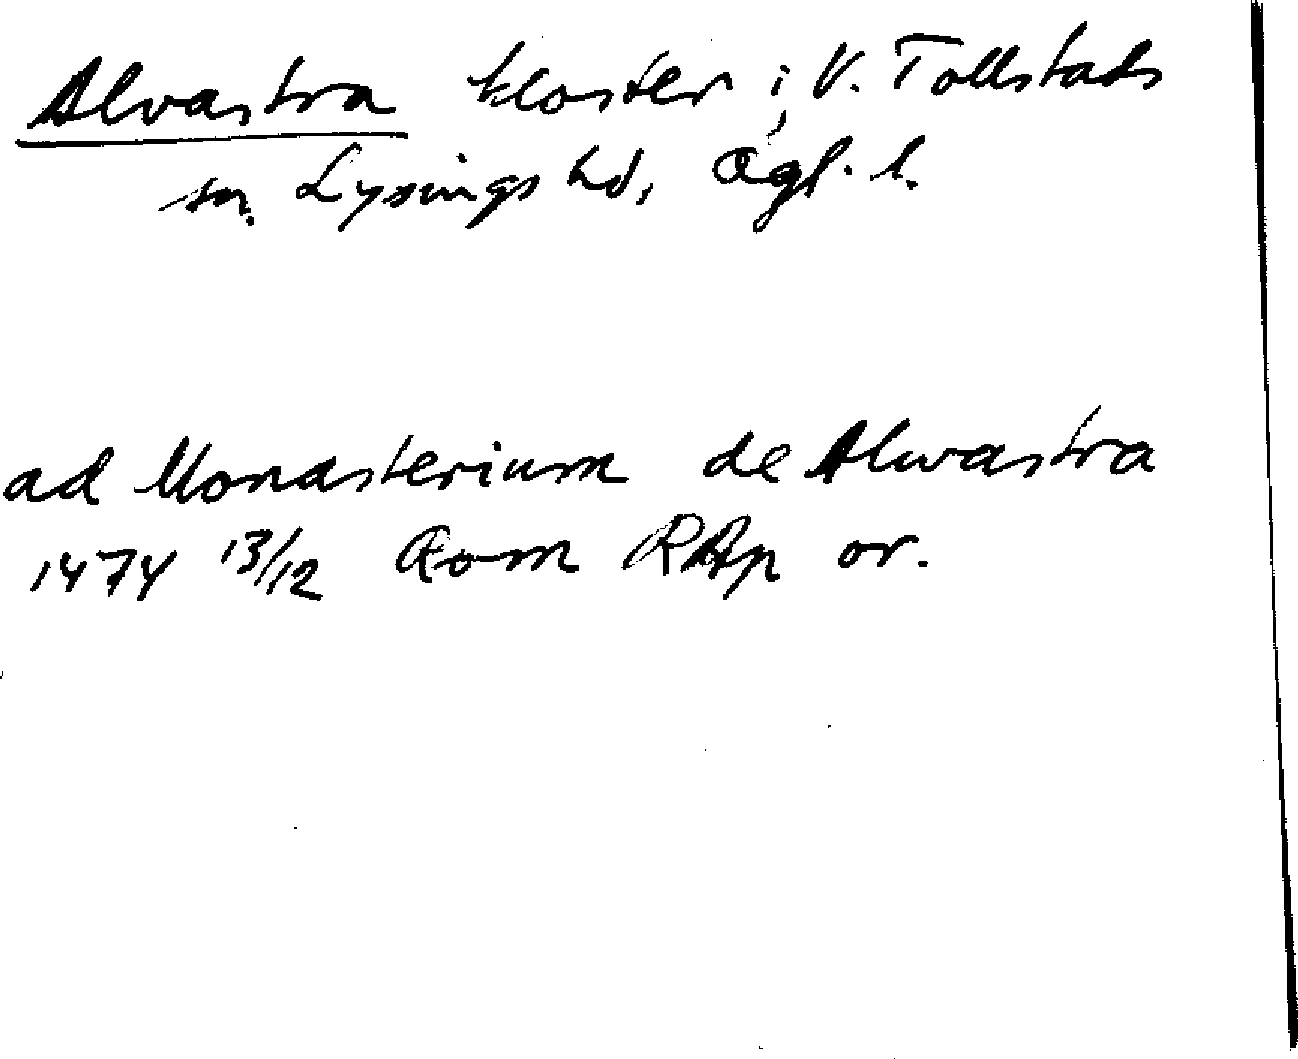 Alvastra kloster i V. Tollstads
sn. Lysings hd, Ögl. l.
ad Monasterium de Alwastra
1474 13/12 Rom RAp or.